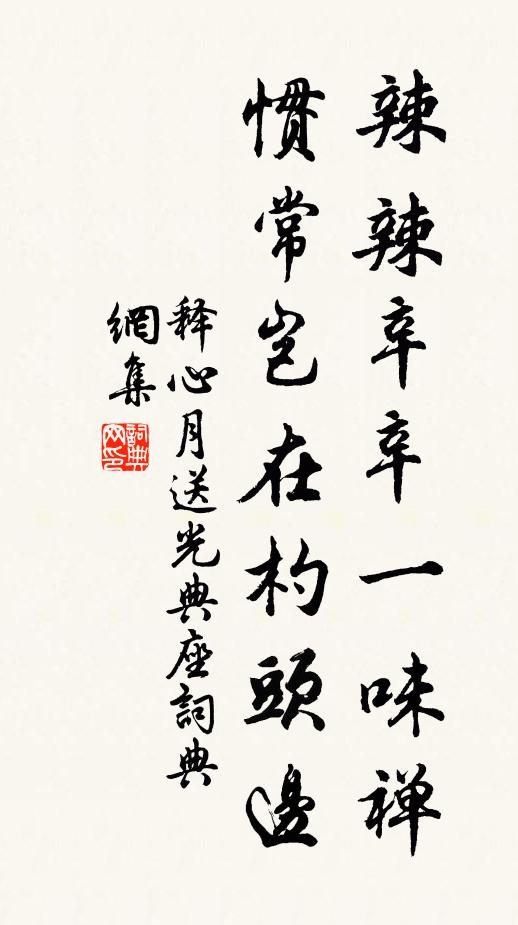 辣辣辛辛一味禅
惯常岂在杓頭邊
释心月送光典座詞典
網集
詞典网印